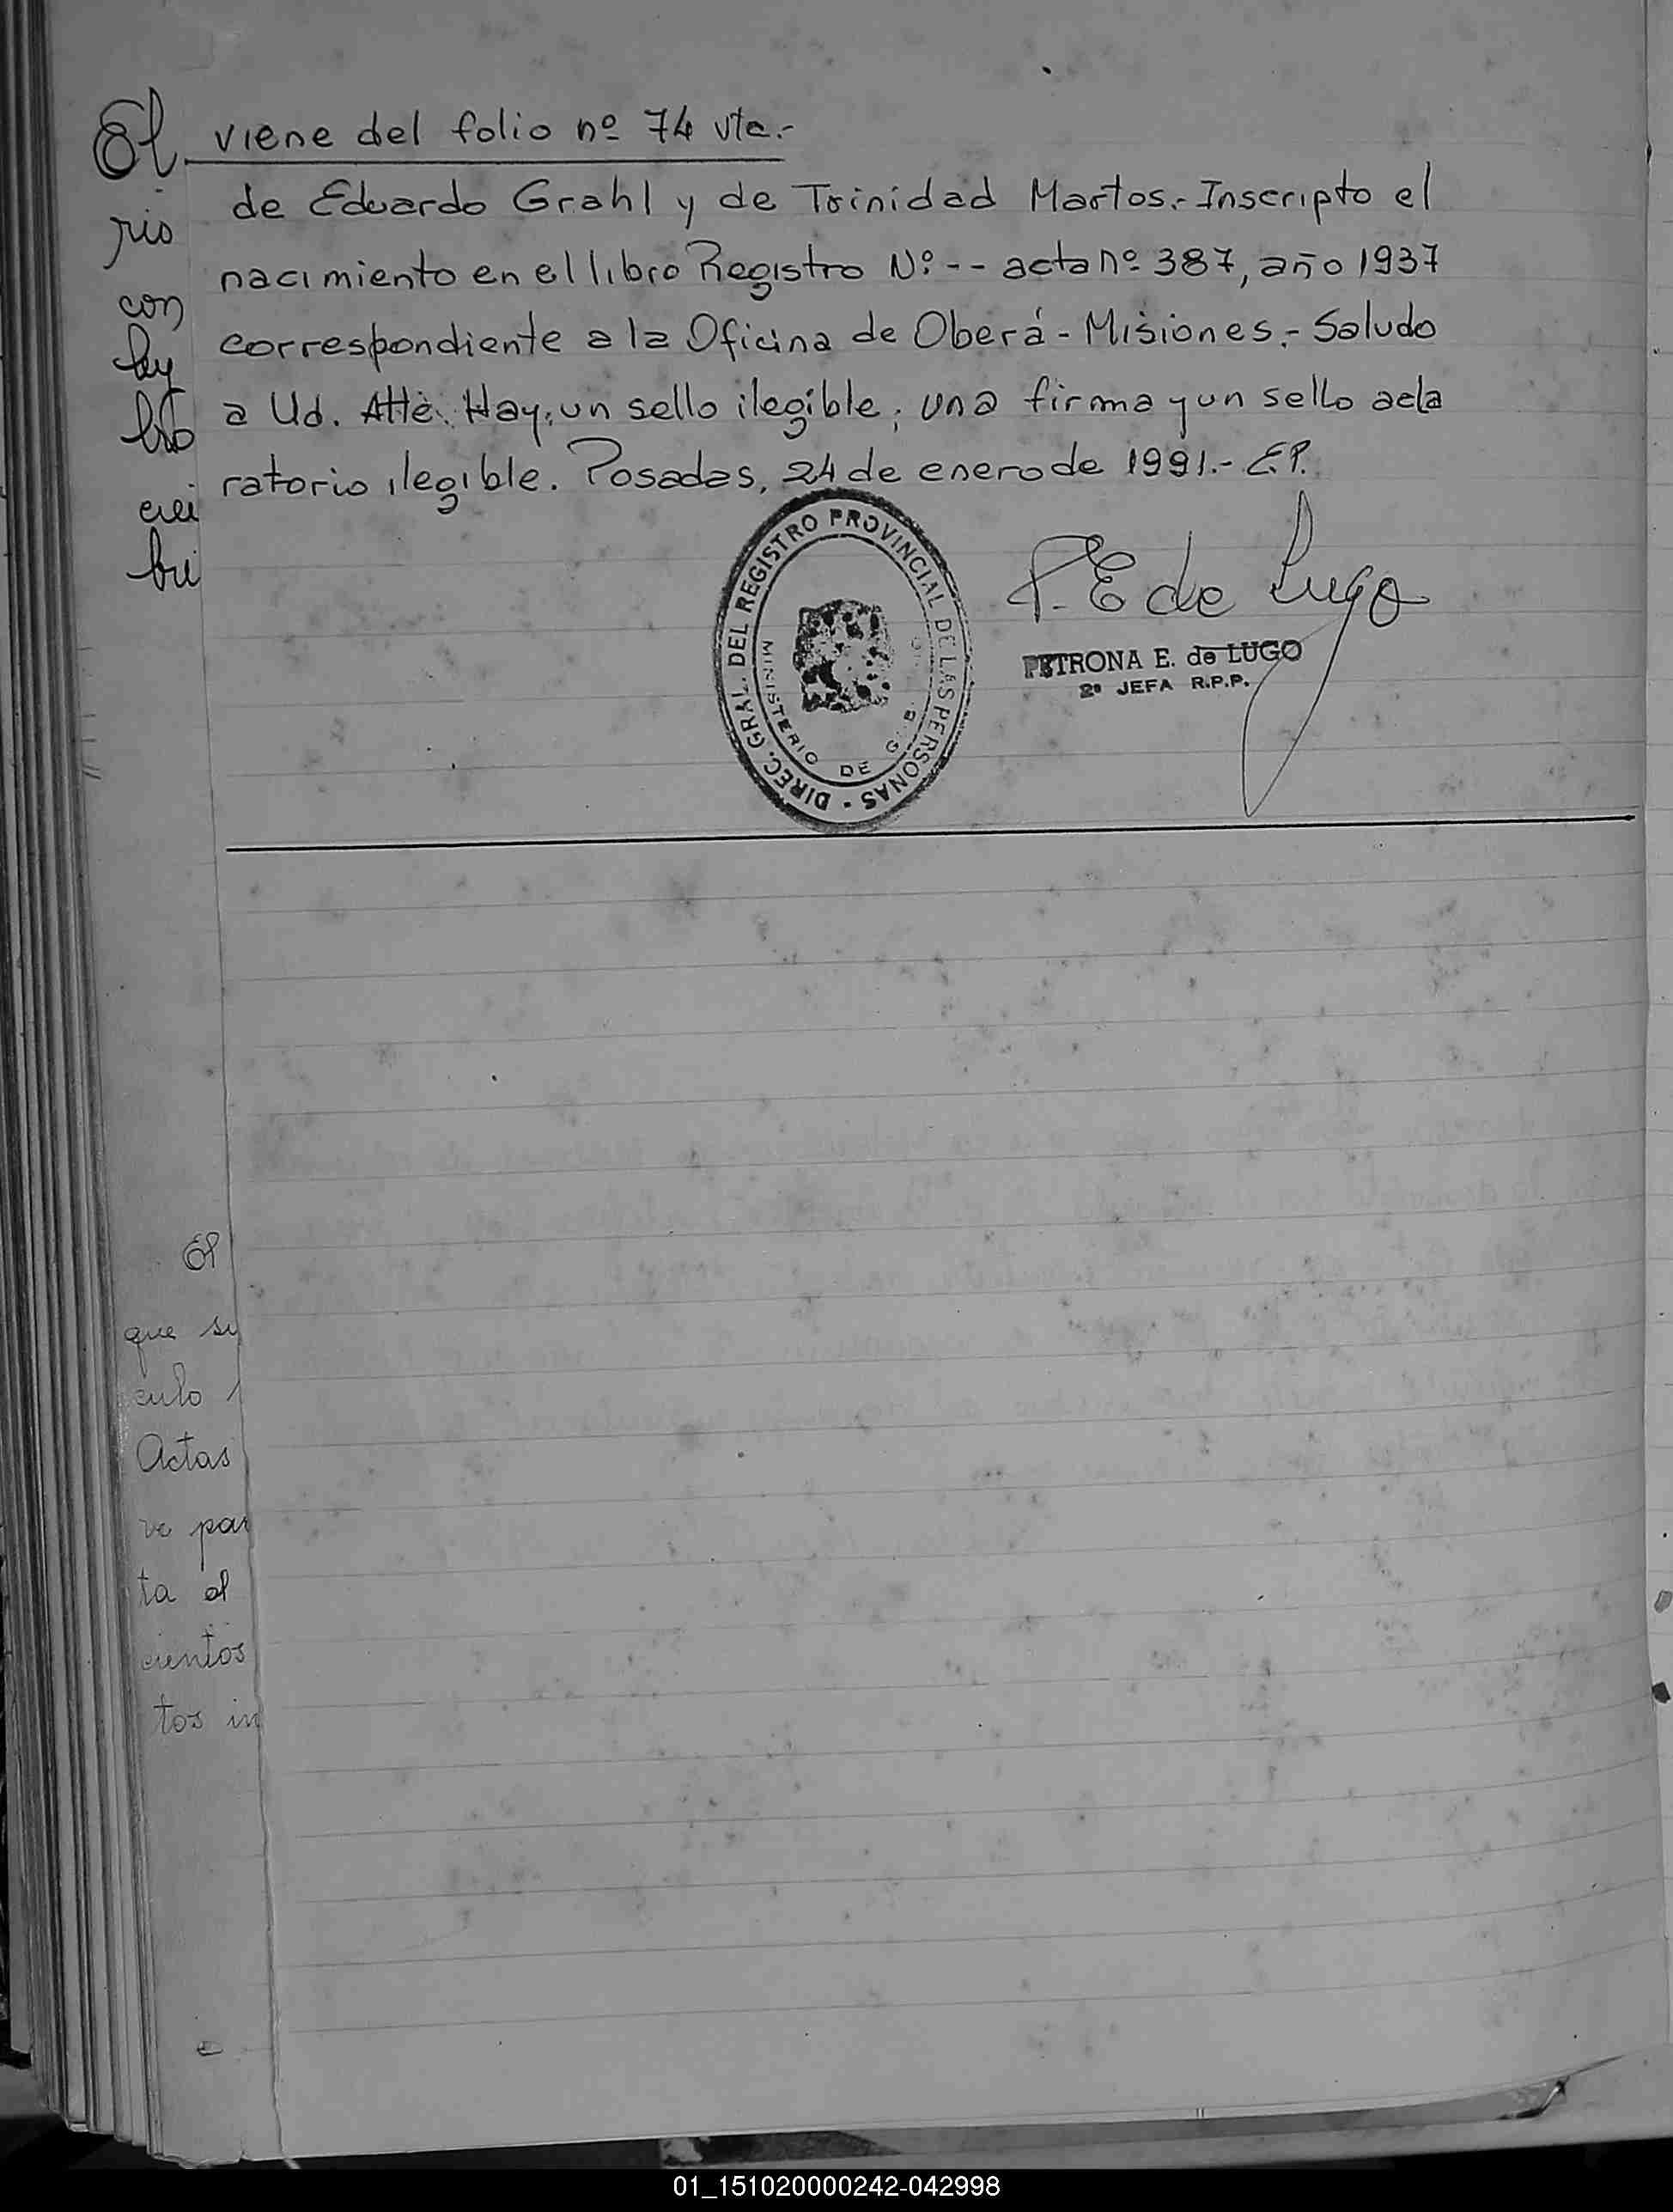 viene del folio nº 74 vta.-
de Eduardo Grahl y de Trinidad Martos.- Inscripto el
nacimiento en el libro Registro Nº -- acta nº 387, año 1937
correspondiente a la Oficina de Oberá - Misiones.- Saludo
a Ud. Atte. Hay: un sello ilegible, una firma y un sello acla
ratorio ilegible. Posadas, 24 de enero de 1991.- E.P.
DIREC. GRAL. DEL REGISTRO PROVINCIAL DE LAS PERSONAS
MINISTERIO DE
P. E de Lugo
PETRONA E. de LUGO
2º JEFA R.P.P.
El
rio
con
ley
bro
bri
El
que su
culo
Actas
ve par
ta el
cientos
tos in
01_151020000242-042998